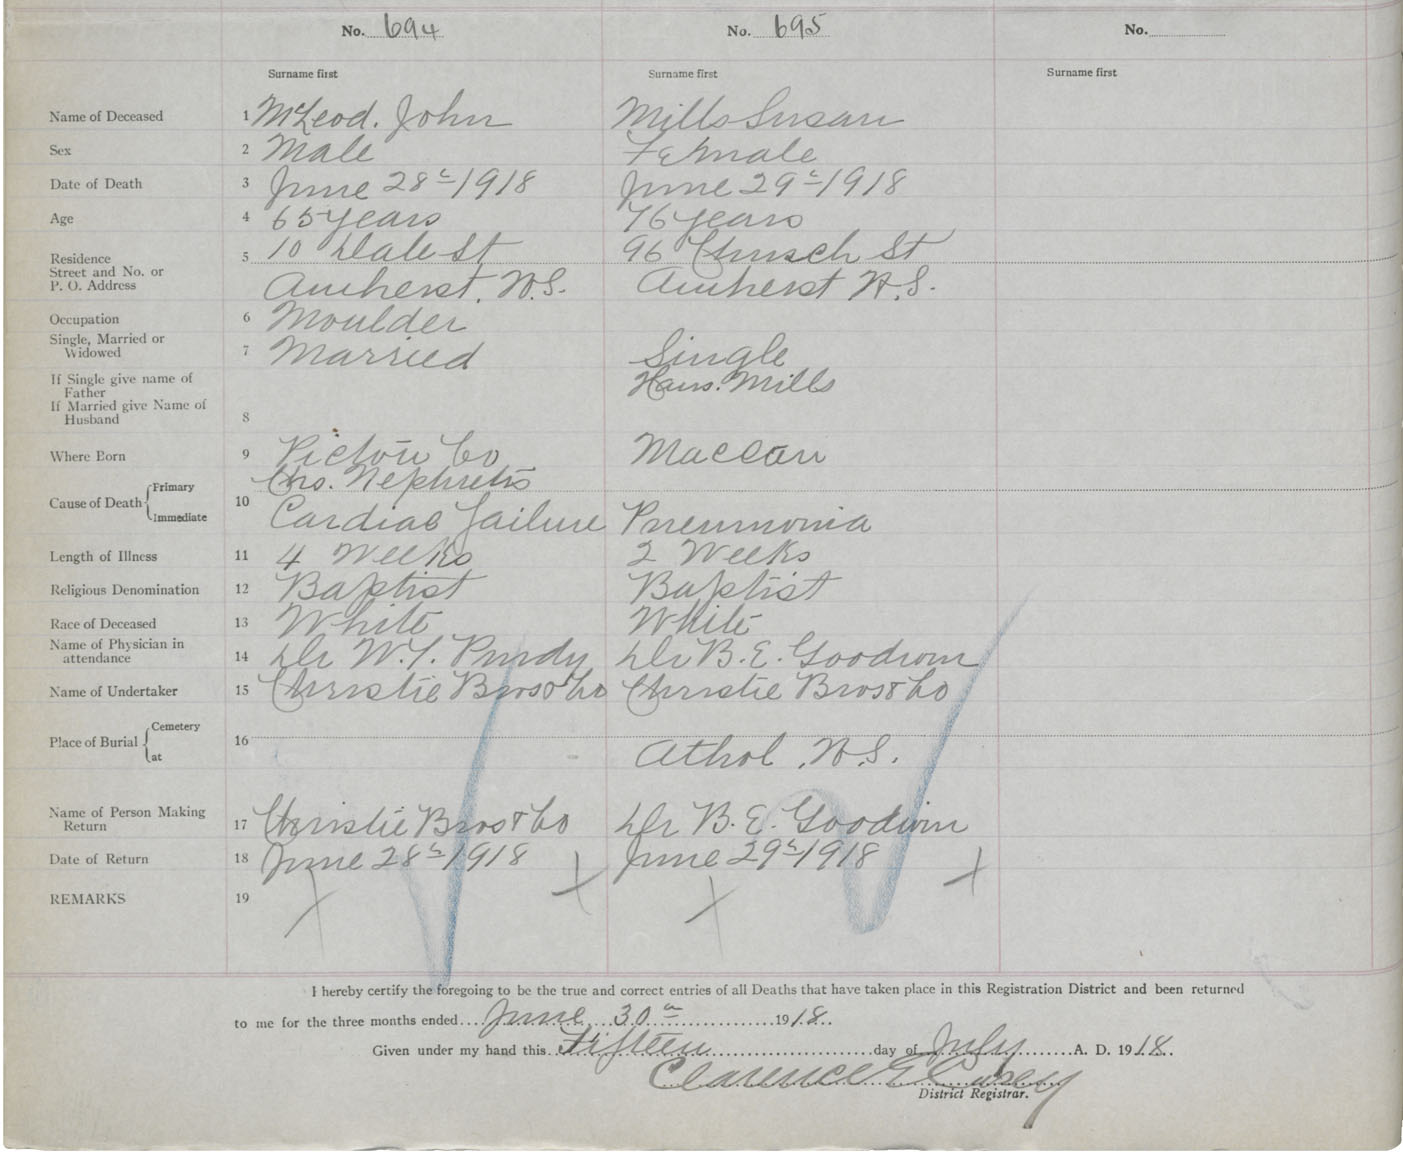 No. 694 No. 695 No.
Surname first Surname first Surname first
Name of Deceased 1 McLeod. John Mills Susan
Sex 2 Male Female
Date of Death 3 June 28th 1918 June 29th 1918
Age 4 65 years 76 years
Residence Street and No. or P. O. Address 5 10 Dale St 96 Church St
Amherst. N.S. Amherst N.S.
Occupation 6 Moulder
Single, Married or Widowed 7 Married Single
If Single give name of Father Mills
If Married give Name of Husband 8
Where Born 9 Pictou Co Maccan
Cause of Death Primary Chro. Nephretis
10
Immediate Cardiac Failure Pneumonia
Length of Illness 11 4 Weeks 2 Weeks
Religious Denomination 12 Baptist Baptist
Race of Deceased 13 White White
Name of Physician in attendance 14 Dr W.T. Purdy Dr B.E. Goodwin
Name of Undertaker 15 Christie Bros & Co Christie Bros & Co
Place of Burial Cemetery 16
at Athol, N.S.
Name of Person Making Return 17 Christie Bros & Co Dr B.E. Goodwin
Date of Return 18 June 28th 1918 June 29th 1918
REMARKS 19
I hereby certify the foregoing to be the true and correct entries of all Deaths that have taken place in this Registration District and been returned
to me for the three months ended June 30th 1918.
Given under my hand this Fifteen day of July A. D. 1918.
Clarence E Casey
District Registrar.